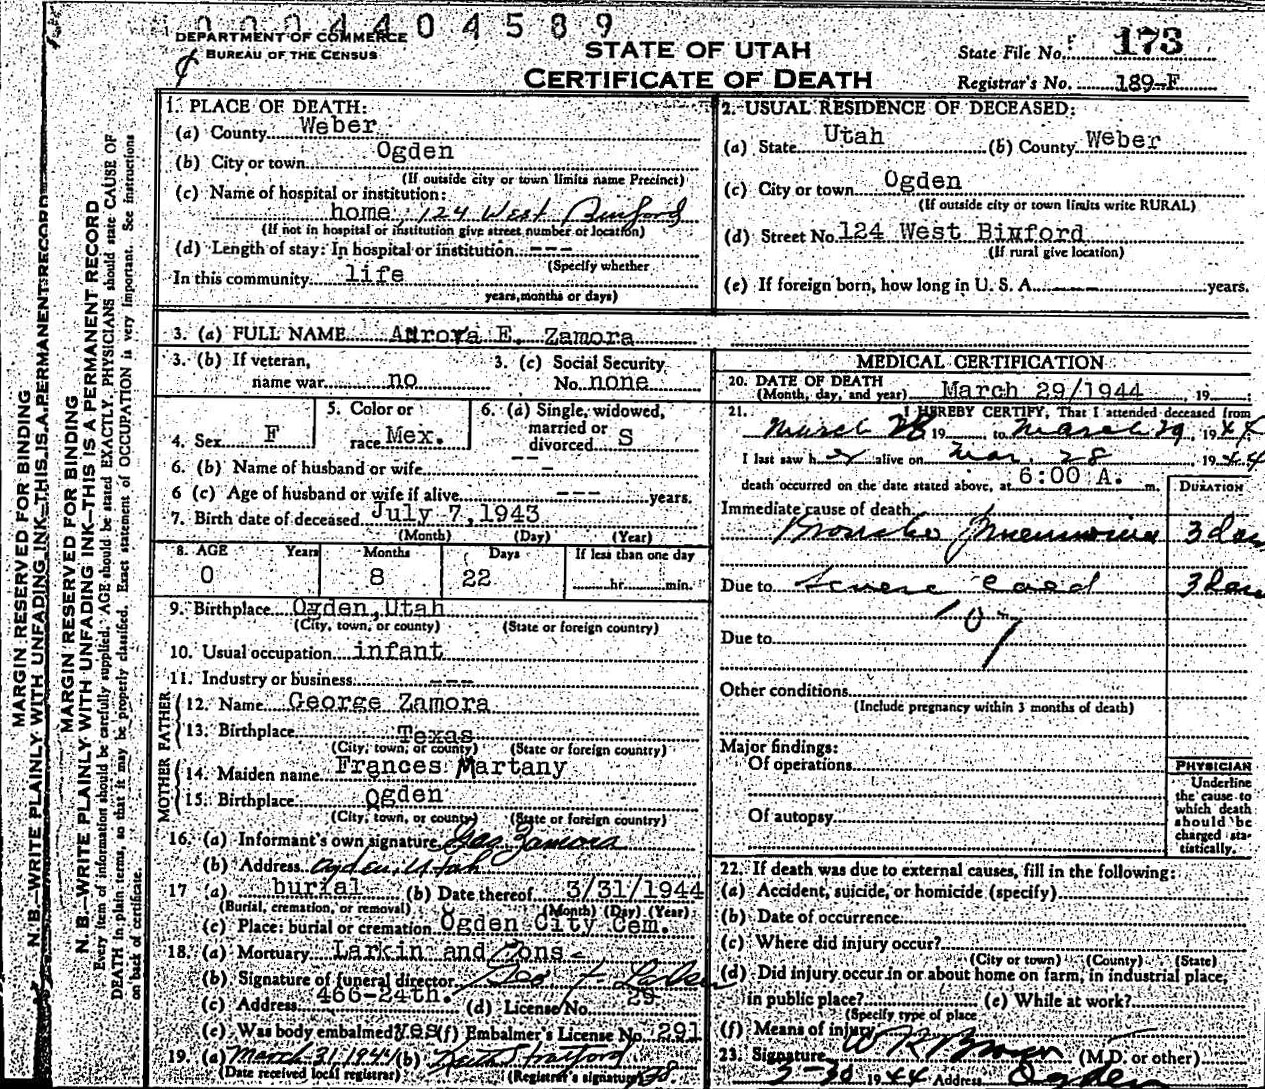 0004404589
DEPARTMENT OF COMMERCE
BUREAU OF THE CENSUS
STATE OF UTAH
CERTIFICATE OF DEATH
State File No. 173
Registrar's No. 189-F
1. PLACE OF DEATH:
(a) County Weber
(b) City or town Ogden
(If outside city or town limits name Precinct)
(c) Name of hospital or institution:
home 124 West Binford
(If not in hospital or institution give street number or location)
(d) Length of stay: In hospital or institution ---
(Specify whether
In this community life
years, months or days)
2. USUAL RESIDENCE OF DECEASED:
(a) State Utah (b) County Weber
(c) City or town Ogden
(If outside city or town limits write RURAL)
(d) Street No. 124 West Binford
(If rural give location)
(e) If foreign born, how long in U. S. A. --- years.
3. (a) FULL NAME Aurora E. Zamora
3. (b) If veteran, name war no
3. (c) Social Security No. none
4. Sex F
5. Color or race Mex.
6. (a) Single, widowed, married or divorced S
6. (b) Name of husband or wife ---
6 (c) Age of husband or wife if alive --- years.
7. Birth date of deceased July 7, 1943
(Month) (Day) (Year)
8. AGE Years Months Days If less than one day
0 8 22 hr. min.
9. Birthplace Ogden, Utah
(City, town, or county) (State or foreign country)
10. Usual occupation infant
11. Industry or business ---
FATHER
12. Name George Zamora
13. Birthplace Texas
(City, town, or county) (State or foreign country)
MOTHER
14. Maiden name Frances Martany
15. Birthplace Ogden
(City, town, or county) (State or foreign country)
16. (a) Informant's own signature Geo Zamora
(b) Address Ogden, Utah
17 (a) burial (b) Date thereof 3/31/1944
(Burial, cremation, or removal) (Month) (Day) (Year)
(c) Place: burial or cremation Ogden City Cem.
18. (a) Mortuary Larkin and Sons
(b) Signature of funeral director Geo Larkin
(c) Address 466-24th. (d) License No. 29
(e) Was body embalmed? yes (f) Embalmer's License No. 291
19. (a) March 31, 1944 (b)
(Date received local registrar) (Registrar's signature)
MEDICAL CERTIFICATION
20. DATE OF DEATH
(Month, day, and year) March 29/1944, 19
21. I HEREBY CERTIFY, That I attended deceased from
March 28 19 to March 29, 1944
I last saw her alive on Mar. 28, 1944
death occurred on the date stated above, at 6:00 A. m.
DURATION
Immediate cause of death
Broncho Pneumonia 3 days
Due to Severe cold 3 days
107
Due to
Other conditions
(Include pregnancy within 3 months of death)
Major findings:
Of operations
Of autopsy
PHYSICIAN
Underline
the cause to
which death
should be
charged sta-
tistically.
22. If death was due to external causes, fill in the following:
(a) Accident, suicide, or homicide (specify)
(b) Date of occurrence
(c) Where did injury occur?
(City or town) (County) (State)
(d) Did injury occur in or about home on farm, in industrial place,
in public place? (e) While at work?
(Specify type of place
(f) Means of injury
23. Signature W R Brown (M.D. or other)
3-30 1944 Address Ogden
MARGIN RESERVED FOR BINDING
N. B.—WRITE PLAINLY WITH UNFADING INK—THIS IS A PERMANENT RECORD
MARGIN RESERVED FOR BINDING
N. B.—WRITE PLAINLY WITH UNFADING INK—THIS IS A PERMANENT RECORD
Every item of information should be carefully supplied. AGE should be stated EXACTLY. PHYSICIANS should state CAUSE OF
DEATH in plain terms, so that it may be properly classified. Exact statement of OCCUPATION is very important. See instructions
on back of certificate.